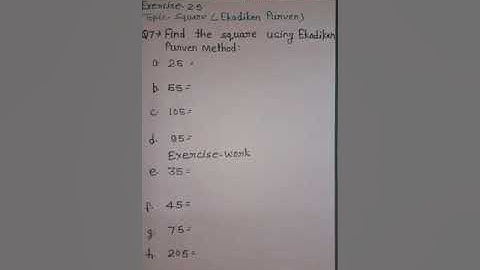 Exercise-25
Topic- Square (Ekadiken Purven)
Q7→ Find the square using Ekadiken
Purven Method:
a. 25 =
b. 55 =
c. 105 =
d. 95 =
Exercise-work
e. 35 =
f. 45 =
g. 75 =
h. 205 =